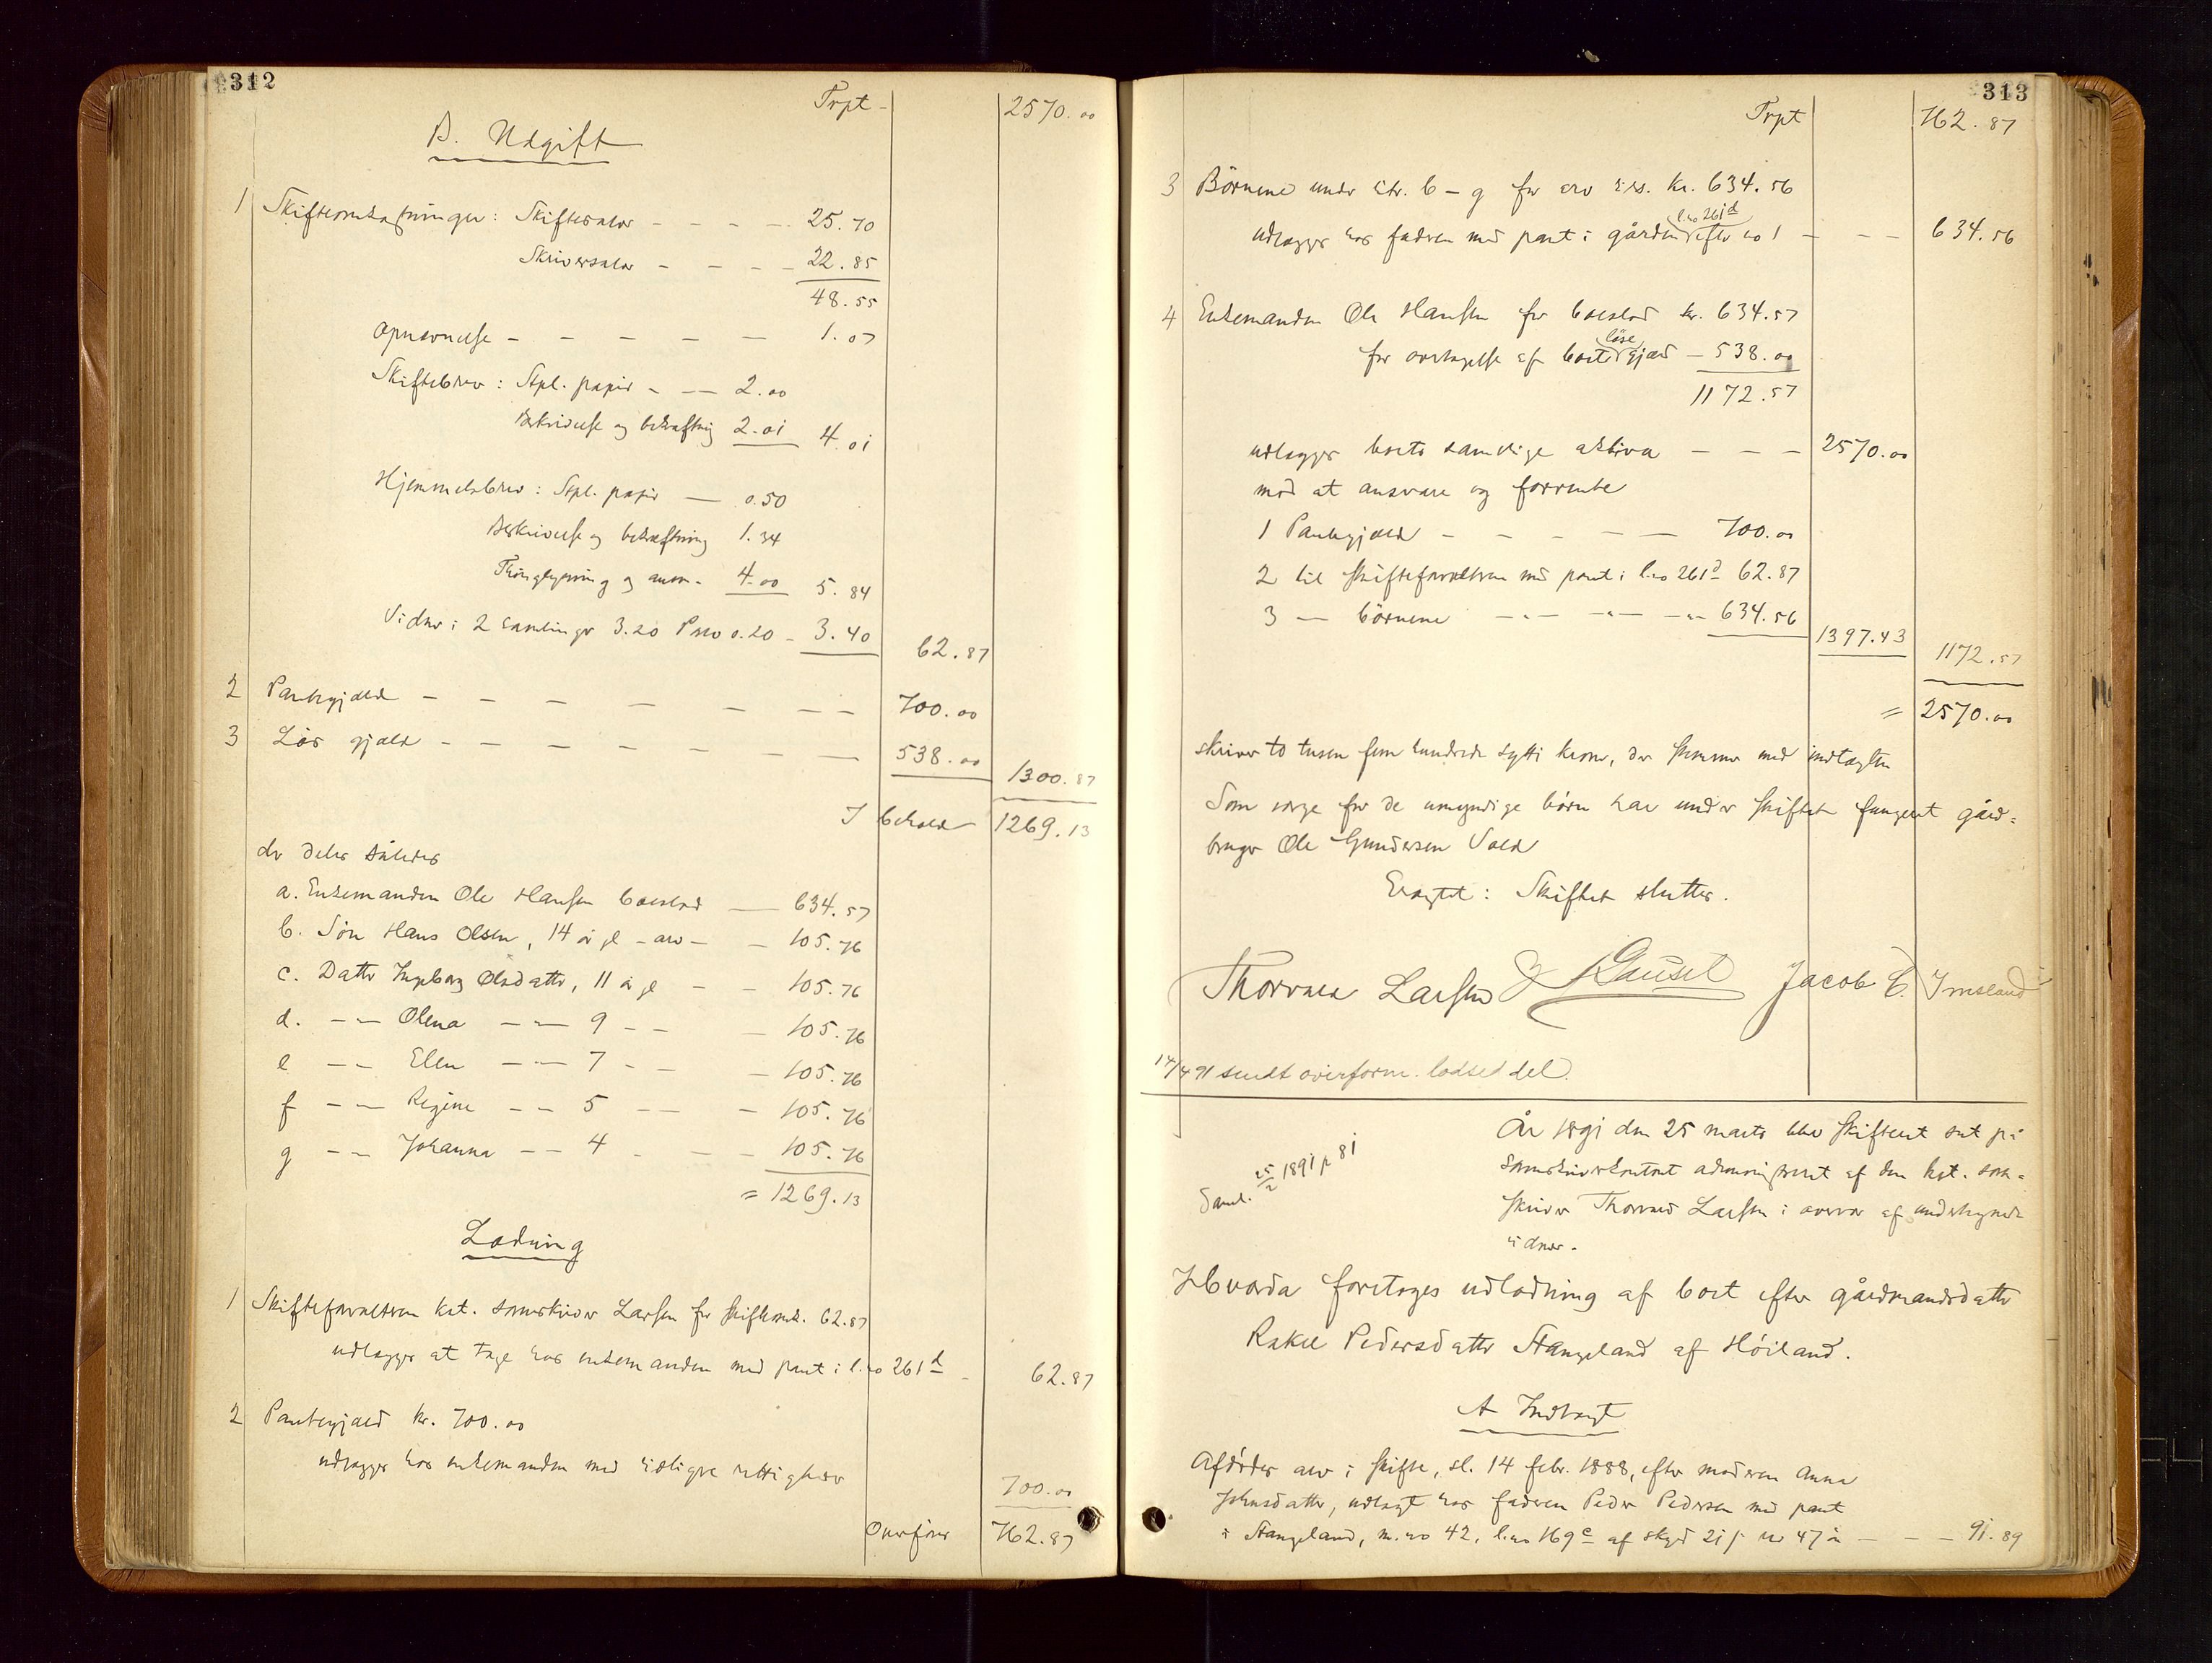 312
Trpt - 2570.00
B. Udgift
1 Skifteomkostninger: Skiftesalær - - - - 25.70
Skriversalær - - - - 22.85
48.55
Opnævnelse - - - - - - 1.07
Skiftebrev: Stpl. papir - - - 2.00
Beskrivelse og bekræftnig 2.01 4.01
Hjemmelsbrev: Stpl. papir - 0.50
Beskrivelse og bekræftning 1.34
Thinglysning og anm. 4.00 5.84
Vidner i 2 samlinger 3.20 Porto 0.20 - 3.40 62.87
2 Pantegjæld - - - - - - - 700.00
3 Løs gjæld - - - - - - - 538.00 1300.87
I behold 1269.13
der deles således
a. Enkemanden Ole Hansen boeslod - 634.57
b. Søn Hans Olsen, 14 år gl - arv - - 105.76
c. Datter Ingeborg Olsdatter, 11 år gl - - 105.76
d. - - Olena - - 9 - - - 105.76
e - - Elen - - 7 - - - 105.76
f - - Regine - - 5 - - - 105.76
g - - Johanna - - 4 - - - 105.76
= 1269.13
Lodning
1 Skifteforvalteren kst. sorenskriver Larsen for skifteomk. 62.87
udlægges at tage hos enkemanden med pant i l.no 261d - 62.87
2 Pantegjæld kr. 700.00
udlægges hos enkemanden med tidligere rettigheder 700.00
Overføres 762.87
313
Trpt 762.87
3 Børnene under litr. b - g for arv tils. kr. 634.56
udlægges hos faderen med pant i gården l.no 261d efter no 1 - - - 634.56
4 Enkemanden Ole Hansen for boeslod kr. 634.57
for overtagelse af boets løse gjæld - 538.00
1172.57
udlægges boets samtlige aktiva - - - 2570.00
mod at ansvare og forrente
1 Pantegjæld - - - - - 700.00
2 til skifteforvalteren med pant i l.no 261d 62.87
3 - børnene - " - - " - - " - 634.56 1397.43 1172.57
= 2570.00
skriver to tusen fem hundrede sytti kroner, der stemmer med indtægten
Som værge for de umyndige børn har under skiftet fungeret gård=
bruger Ole Gundersen Vold
Eragtet: Skiftet slutter.
Thorvald Larsen Gausel Jacob E. Imsland
14/4 91 sendt overform. lodseddel.
Saml. 25/2 1891 p 81
År 1891 den 25 marts blev skifteret sat på
sorenskriverkontoret administreret af den kst. soren=
skriver Thorvald Larsen i overvær af undertegnede
vidner.
Hvorda foretoges udlodning af boet efter gårdmandsdatter
Rakel Pedersdatter Stangeland af Höiland.
A Indtægt
Afdødes arv i skifte, sl. 14 febr. 1888, efter moderen Anna
Johnsdatter, udlagt hos faderen Peder Pedersen med pant
i Stangeland, m.no 42, l.no 169c af skyld 2 mr 47 ør - - - 91.89